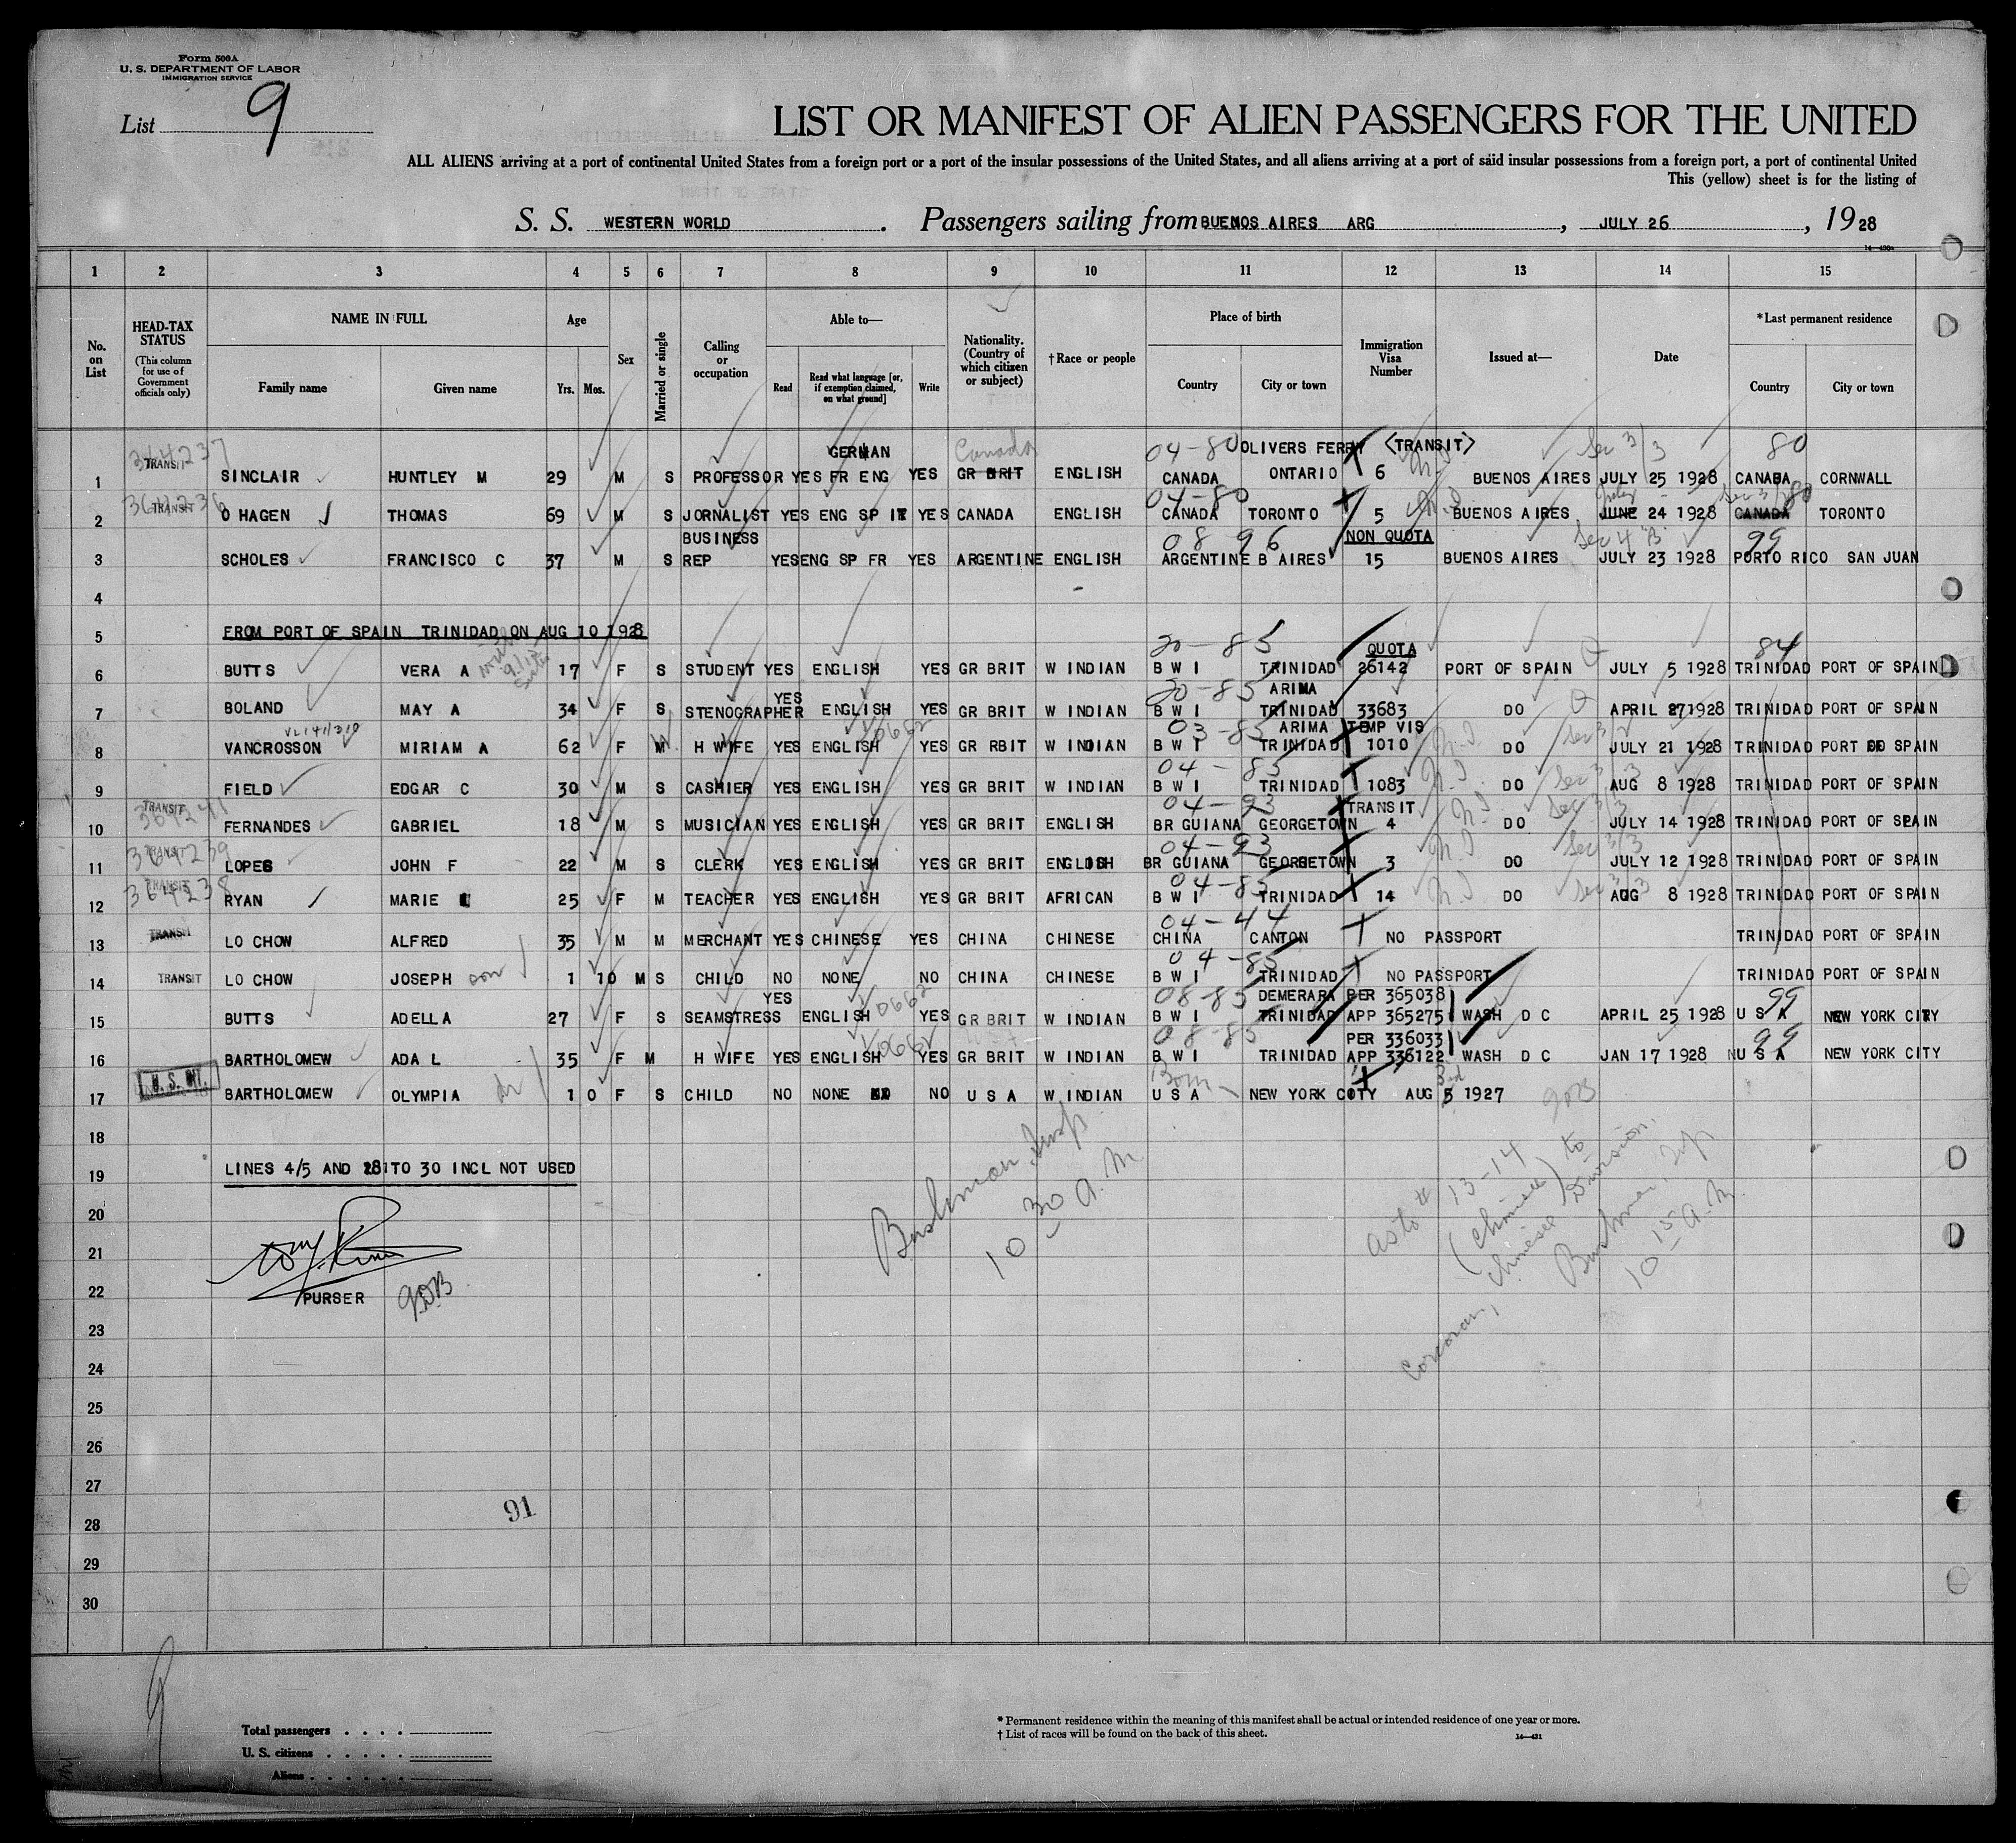 Form 500A
U. S. DEPARTMENT OF LABOR
IMMIGRATION SERVICE
List 9
LIST OR MANIFEST OF ALIEN PASSENGERS FOR THE UNITED
ALL ALIENS arriving at a port of continental United States from a foreign port or a port of the insular possessions of the United States, and all aliens arriving at a port of said insular possessions from a foreign port, a port of continental United
This (yellow) sheet is for the listing of
S. S. WESTERN WORLD . Passengers sailing from BUENOS AIRES ARG , JULY 26 , 1928
1 2 3 4 5 6 7 8 9 10 11 12 13 14 15
No. on List
HEAD-TAX STATUS (This column for use of Government officials only)
NAME IN FULL
Family name Given name
Age
Yrs. Mos.
Sex
Married or single
Calling or occupation
Able to—
Read Read what language [or, if exemption claimed, on what ground] Write
Nationality. (Country of which citizen or subject)
†Race or people
Place of birth
Country City or town
Immigration Visa Number
Issued at—
Date
*Last permanent residence
Country City or town
364237 GERMAN Canada 04-80 OLIVERS FERRY (TRANSIT) Sec 3/3 80
1 TRANSIT SINCLAIR HUNTLEY M 29 M S PROFESSOR YES FR ENG YES GR BRIT ENGLISH CANADA ONTARIO 6 BUENOS AIRES JULY 25 1928 CANADA CORNWALL
364236 04-80 July 80
2 TRANSIT O HAGEN THOMAS 69 M S JORNALIST YES ENG SP IT YES CANADA ENGLISH CANADA TORONTO 5 BUENOS AIRES JUNE 24 1928 CANADA TORONTO
BUSINESS 08 96 NON QUOTA Sec 4 "B" 99
3 SCHOLES FRANCISCO C 37 M S REP YES ENG SP FR YES ARGENTINE ENGLISH ARGENTINE B AIRES 15 BUENOS AIRES JULY 23 1928 PORTO RICO SAN JUAN
4
5 FROM PORT OF SPAIN TRINIDAD ON AUG 10 1928
20-85 QUOTA 84
6 BUTTS VERA A 17 F S STUDENT YES ENGLISH YES GR BRIT W INDIAN B W I TRINIDAD 26142 PORT OF SPAIN JULY 5 1928 TRINIDAD PORT OF SPAIN
20-85 ARIMA
7 BOLAND MAY A 34 F S STENOGRAPHER YES ENGLISH YES GR BRIT W INDIAN B W I TRINIDAD 33683 DO APRIL 27 1928 TRINIDAD PORT OF SPAIN
03-85 ARIMA TEMP VIS
8 VANCROSSON MIRIAM A 62 F M H WIFE YES ENGLISH YES GR RBIT W INDIAN B W I TRINIDAD 1010 DO JULY 21 1928 TRINIDAD PORT OF SPAIN
04-85
9 FIELD EDGAR C 30 M S CASHIER YES ENGLISH YES GR BRIT W INDIAN B W I TRINIDAD 1083 DO AUG 8 1928 TRINIDAD PORT OF SPAIN
364241 04-93 TRANSIT
10 TRANSIT FERNANDES GABRIEL 18 M S MUSICIAN YES ENGLISH YES GR BRIT ENGLISH BR GUIANA GEORGETOWN 4 DO JULY 14 1928 TRINIDAD PORT OF SPAIN
364239 04-93
11 TRANSIT LOPES JOHN F 22 M S CLERK YES ENGLISH YES GR BRIT ENGLISH BR GUIANA GEORGETOWN 3 DO JULY 12 1928 TRINIDAD PORT OF SPAIN
364238 04-85
12 TRANSIT RYAN MARIE 25 F M TEACHER YES ENGLISH YES GR BRIT AFRICAN B W I TRINIDAD 14 DO AUG 8 1928 TRINIDAD PORT OF SPAIN
04-44
13 TRANSIT LO CHOW ALFRED 35 M M MERCHANT YES CHINESE YES CHINA CHINESE CHINA CANTON NO PASSPORT TRINIDAD PORT OF SPAIN
04-85
14 TRANSIT LO CHOW JOSEPH son 1 10 M S CHILD NO NONE NO CHINA CHINESE B W I TRINIDAD NO PASSPORT TRINIDAD PORT OF SPAIN
08-85 DEMERARA PER 365038 99
15 BUTTS ADELLA 27 F S SEAMSTRESS YES ENGLISH YES GR BRIT W INDIAN B W I TRINIDAD APP 365275 WASH D C APRIL 25 1928 U S A NEW YORK CITY
08-85 PER 336033 99
16 BARTHOLOMEW ADA L 35 F M H WIFE YES ENGLISH YES GR BRIT W INDIAN B W I TRINIDAD APP 336122 WASH D C JAN 17 1928 U S A NEW YORK CITY
Born 3rd
17 BARTHOLOMEW OLYMPIA 1 0 F S CHILD NO NONE NO U S A W INDIAN U S A NEW YORK CITY AUG 5 1927
18
19 LINES 4/5 AND 18 TO 30 INCL NOT USED
Bushman Insp
10 30 A.M.
as to # 13-14
(Chinese) to
Chinese Division.
Bushman, Insp
10 15 A.M.
20
21
22 PURSER
23
24
25
26
27
91
28
29
30
9
Total passengers
U. S. citizens
Aliens
* Permanent residence within the meaning of this manifest shall be actual or intended residence of one year or more.
† List of races will be found on the back of this sheet.
14—431